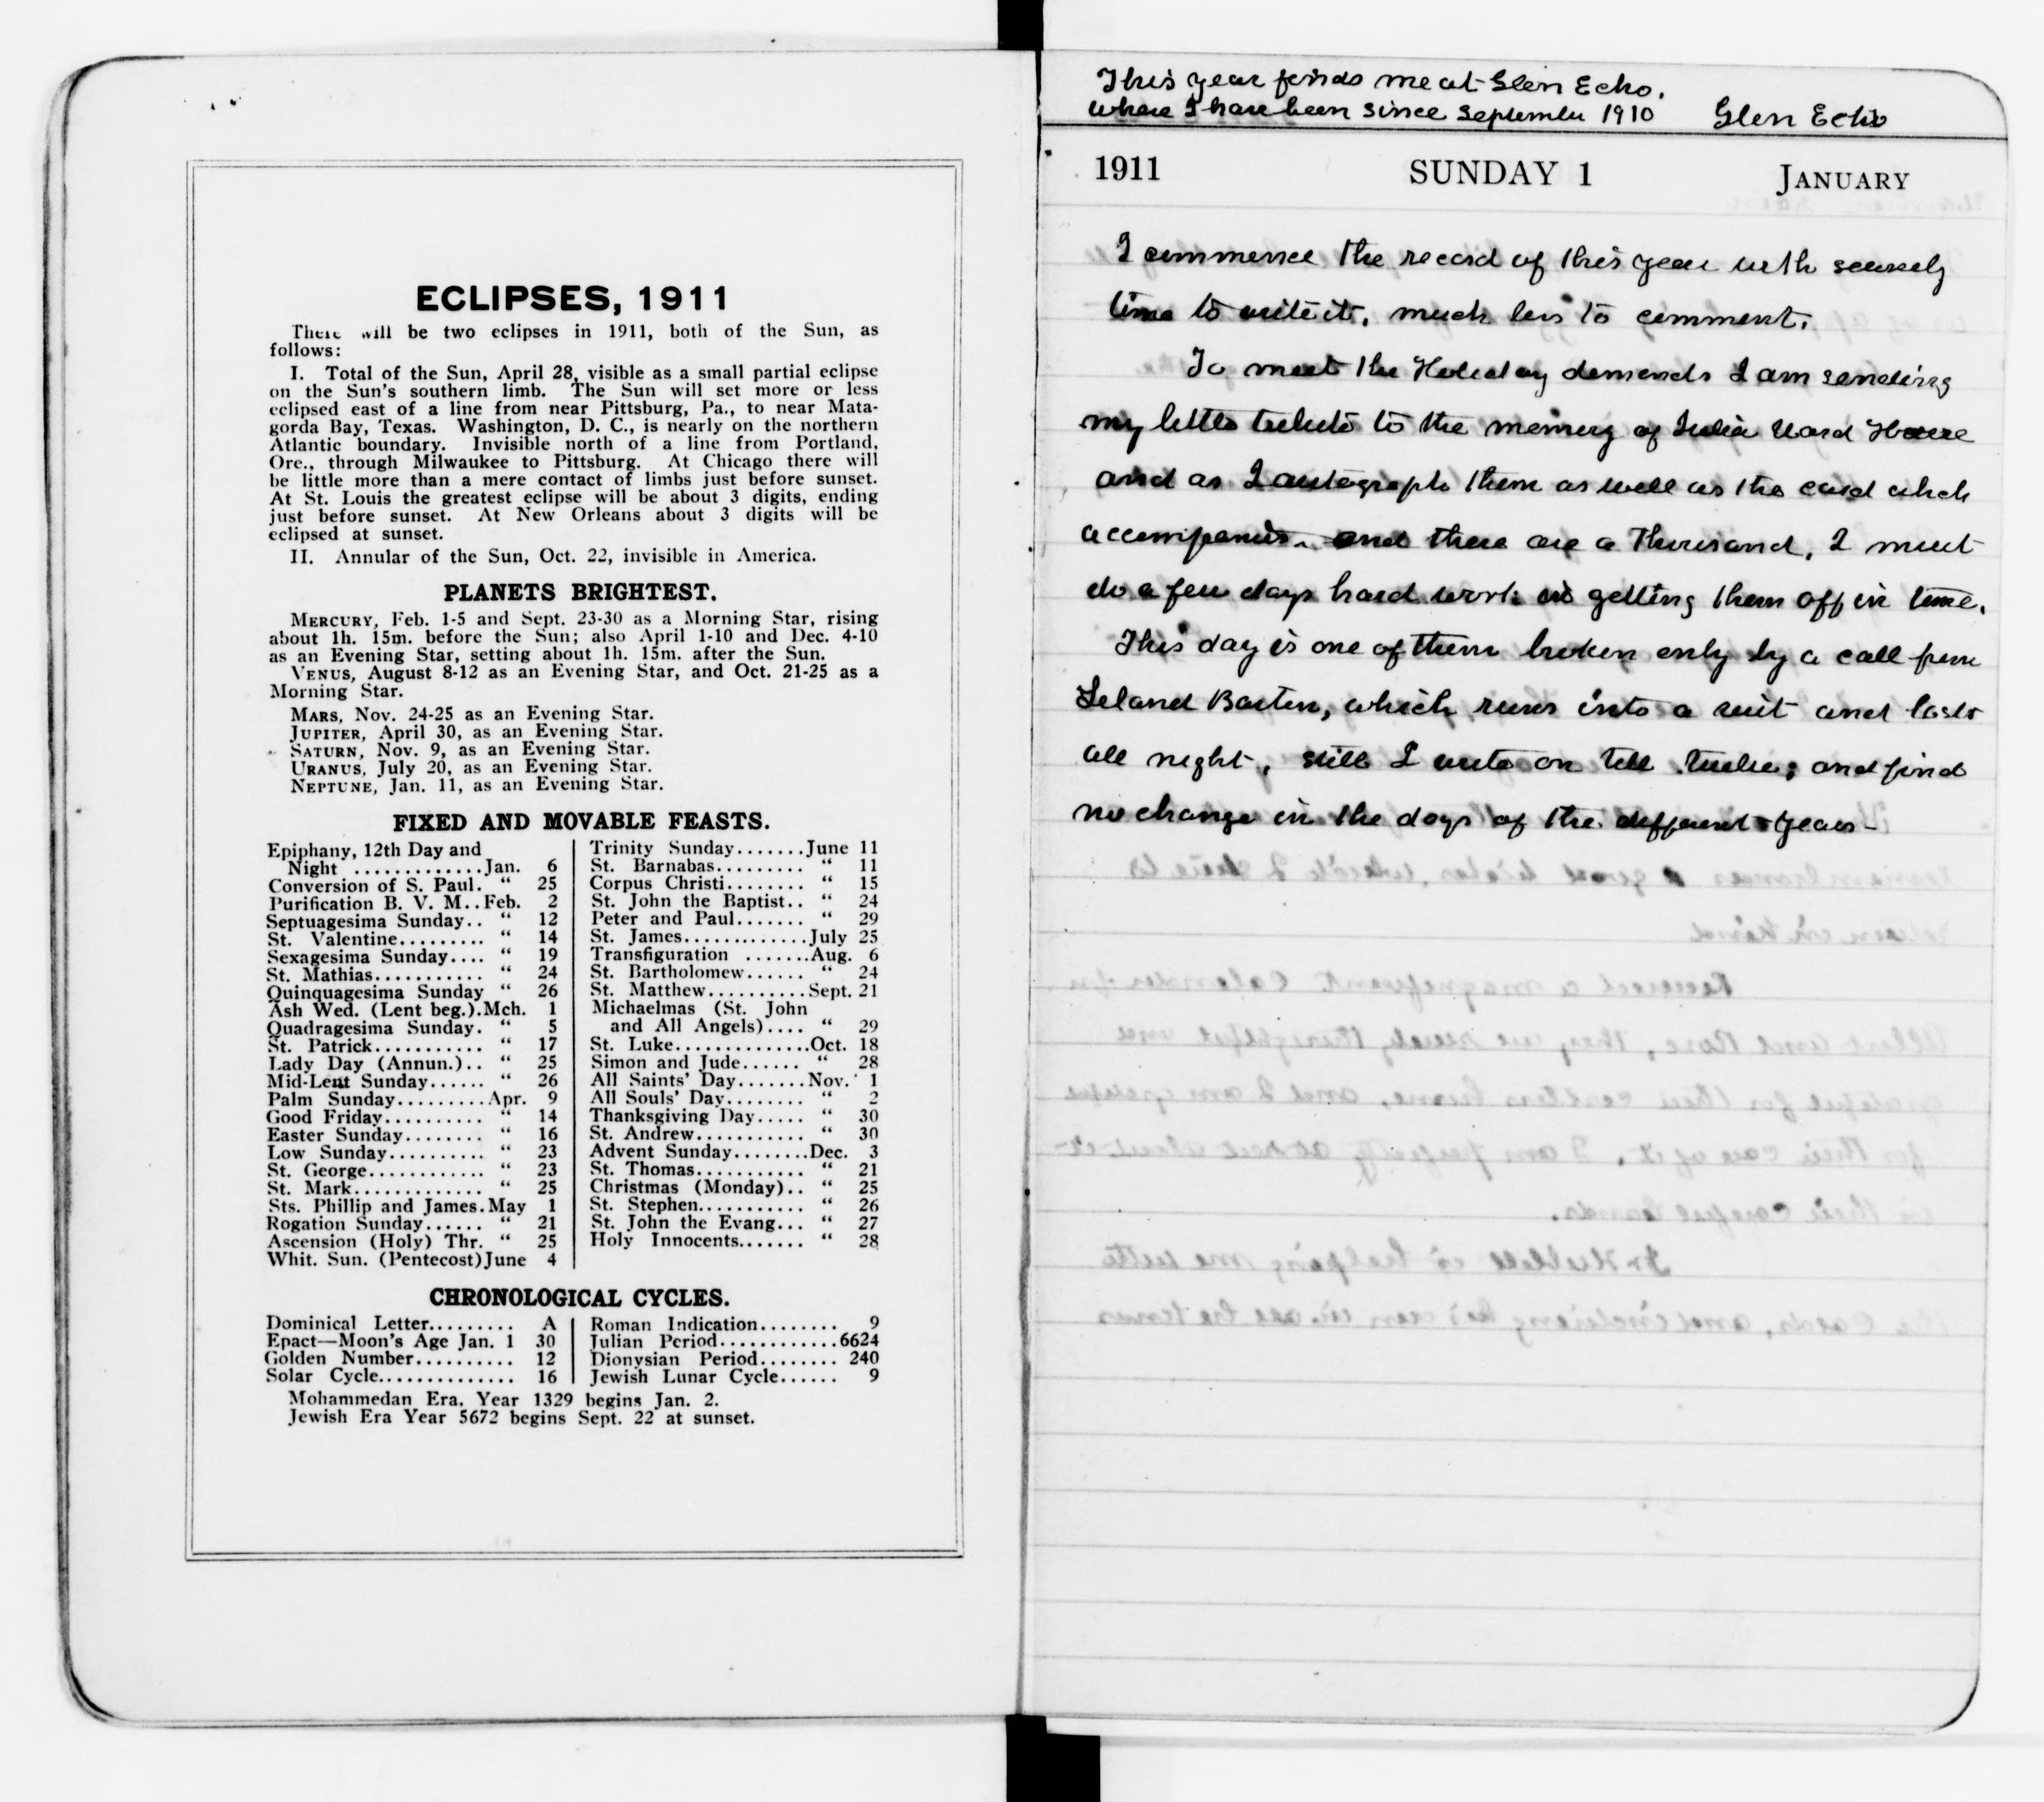 ECLIPSES, 1911
There will be two eclipses in 1911, both of the Sun, as
follows:
I. Total of the Sun, April 28, visible as a small partial eclipse
on the Sun's southern limb. The Sun will set more or less
eclipsed east of a line from near Pittsburg, Pa., to near Mata-
gorda Bay, Texas. Washington, D. C., is nearly on the northern
Atlantic boundary. Invisible north of a line from Portland,
Ore., through Milwaukee to Pittsburg. At Chicago there will
be little more than a mere contact of limbs just before sunset.
At St. Louis the greatest eclipse will be about 3 digits, ending
just before sunset. At New Orleans about 3 digits will be
eclipsed at sunset.
II. Annular of the Sun, Oct. 22, invisible in America.
PLANETS BRIGHTEST.
MERCURY, Feb. 1-5 and Sept. 23-30 as a Morning Star, rising
about 1h. 15m. before the Sun; also April 1-10 and Dec. 4-10
as an Evening Star, setting about 1h. 15m. after the Sun.
VENUS, August 8-12 as an Evening Star, and Oct. 21-25 as a
Morning Star.
MARS, Nov. 24-25 as an Evening Star.
JUPITER, April 30, as an Evening Star.
SATURN, Nov. 9, as an Evening Star.
URANUS, July 20, as an Evening Star.
NEPTUNE, Jan. 11, as an Evening Star.
FIXED AND MOVABLE FEASTS.
Epiphany, 12th Day and
Night .............Jan. 6
Conversion of S. Paul. “ 25
Purification B. V. M..Feb. 2
Septuagesima Sunday.. “ 12
St. Valentine......... “ 14
Sexagesima Sunday.... “ 19
St. Mathias........... “ 24
Quinquagesima Sunday “ 26
Ash Wed. (Lent beg.).Mch. 1
Quadragesima Sunday. “ 5
St. Patrick........... “ 17
Lady Day (Annun.).. “ 25
Mid-Lent Sunday...... “ 26
Palm Sunday.........Apr. 9
Good Friday.......... “ 14
Easter Sunday........ “ 16
Low Sunday.......... “ 23
St. George............ “ 23
St. Mark............. “ 25
Sts. Phillip and James.May 1
Rogation Sunday...... “ 21
Ascension (Holy) Thr. “ 25
Whit. Sun. (Pentecost)June 4
Trinity Sunday.......June 11
St. Barnabas......... “ 11
Corpus Christi........ “ 15
St. John the Baptist.. “ 24
Peter and Paul....... “ 29
St. James.............July 25
Transfiguration .......Aug. 6
St. Bartholomew...... “ 24
St. Matthew..........Sept. 21
Michaelmas (St. John
and All Angels).... “ 29
St. Luke..............Oct. 18
Simon and Jude...... “ 28
All Saints' Day.......Nov. 1
All Souls' Day........ “ 2
Thanksgiving Day..... “ 30
St. Andrew........... “ 30
Advent Sunday........Dec. 3
St. Thomas........... “ 21
Christmas (Monday).. “ 25
St. Stephen........... “ 26
St. John the Evang... “ 27
Holy Innocents....... “ 28
CHRONOLOGICAL CYCLES.
Dominical Letter......... A
Epact—Moon's Age Jan. 1 30
Golden Number.......... 12
Solar Cycle.............. 16
Roman Indication........ 9
Julian Period............6624
Dionysian Period........ 240
Jewish Lunar Cycle...... 9
Mohammedan Era. Year 1329 begins Jan. 2.
Jewish Era Year 5672 begins Sept. 22 at sunset.
This year finds me at Glen Echo.
where I have been since September 1910 Glen Echo
1911 SUNDAY 1 JANUARY
I commence the record of this year with scarcely
time to write it, much less to comment.
To meet the Holiday demands I am sending
my little tribute to the memory of Julia Ward Howe
and as I autograph them as well as the card which
accompanies, and there are a Thousand, I must
do a few days hard work in getting them off in time.
This day is one of them broken only by a call from
Leland Barton, which runs into a visit and lasts
all night, still I write on till twelve; and find
no change in the days of the different years-